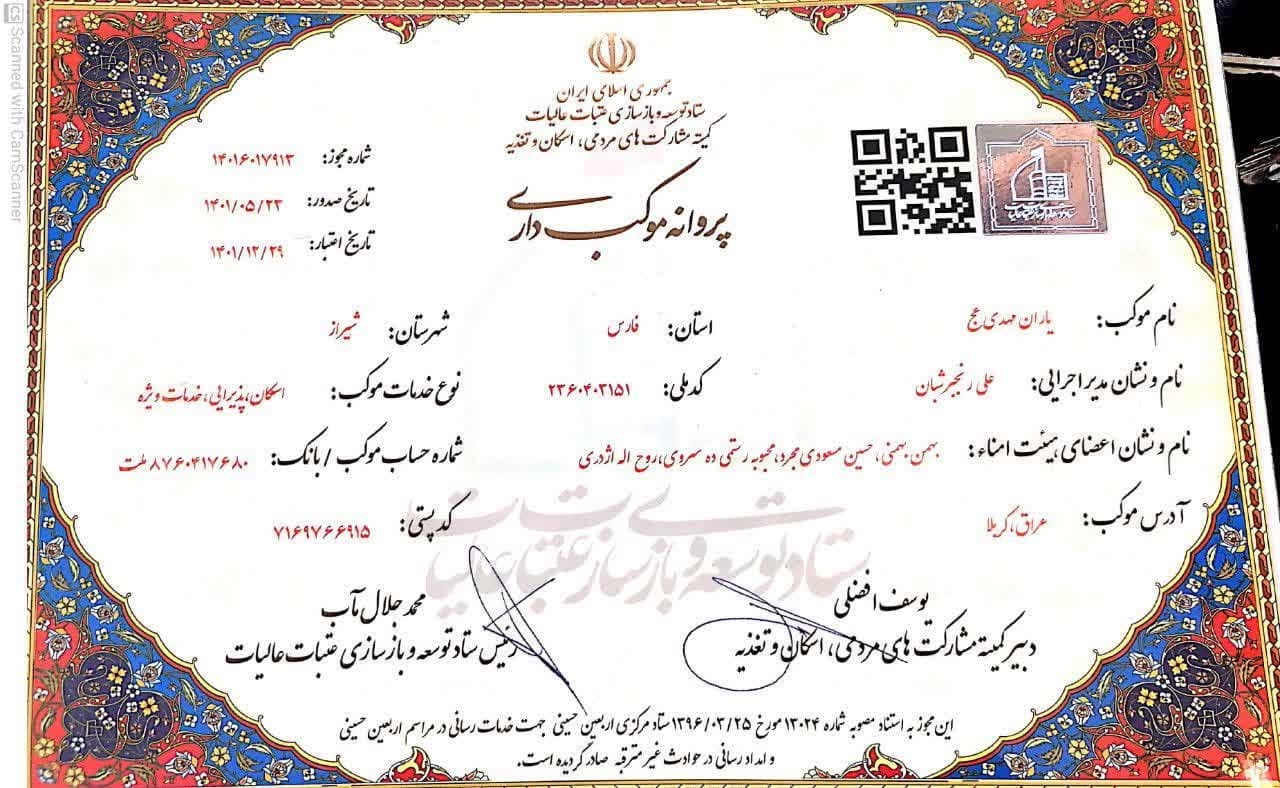 Scanned with CamScanner
جمهوری اسلامی ایران
ستاد توسعه و بازسازی عتبات عالیات
کمیته مشارکت های مردمی، اسکان و تغذیه
پروانه موکب داری
شماره مجوز: ۱۴۰۱۶۰۱۷۹۱۳
تاریخ صدور: ۱۴۰۱/۰۵/۲۳
تاریخ اعتبار: ۱۴۰۱/۱۲/۲۹
نام موکب: یاران مهدی عج استان: فارس شهرستان: شیراز
نام و نشان مدیر اجرایی: علی رنجبر شبان کد ملی: ۲۳۶۰۴۰۳۱۵۱ نوع خدمات موکب: اسکان،پذیرایی، خدمات ویژه
نام و نشان اعضای هیئت امناء: بهمن بهمنی، حسین مسعودی مجرد، محبوبه رستمی ده سروی، روح اله اژدری شماره حساب موکب / بانک: ۸۷۶۰۴۱۷۶۸۰ ملت
آدرس موکب: عراق، کربلا کد پستی: ۷۱۶۹۷۶۶۹۱۵
ستاد توسعه و بازسازی عتبات عالیات
یوسف افضلی
دبیر کمیته مشارکت های مردمی، اسکان و تغذیه
محمد جلال مآب
رئیس ستاد توسعه و بازسازی عتبات عالیات
این مجوز به استناد مصوبه شماره ۱۳۰۲۴ مورخ ۱۳۹۶/۰۳/۲۵ ستاد مرکزی اربعین حسینی جهت خدمات رسانی در مراسم اربعین حسینی
و امداد رسانی در حوادث غیر مترقبه صادر گردیده است.